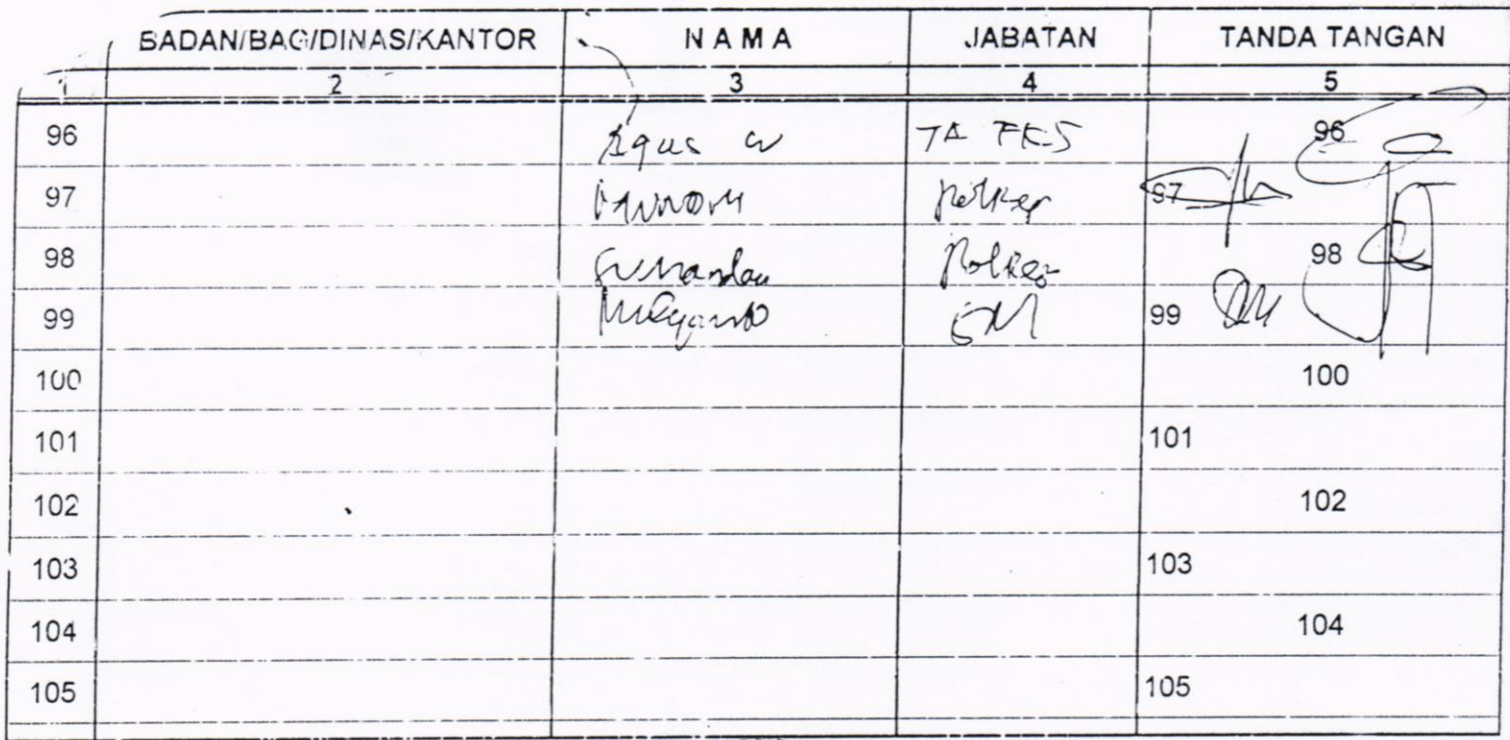 BADAN/BAG/DINAS/KANTOR NAMA JABATAN TANDA TANGAN
1 2 3 4 5
96 Agus W TA FKS 96
97 97
98 98
99 Mulyanto 99
100 100
101 101
102 102
103 103
104 104
105 105